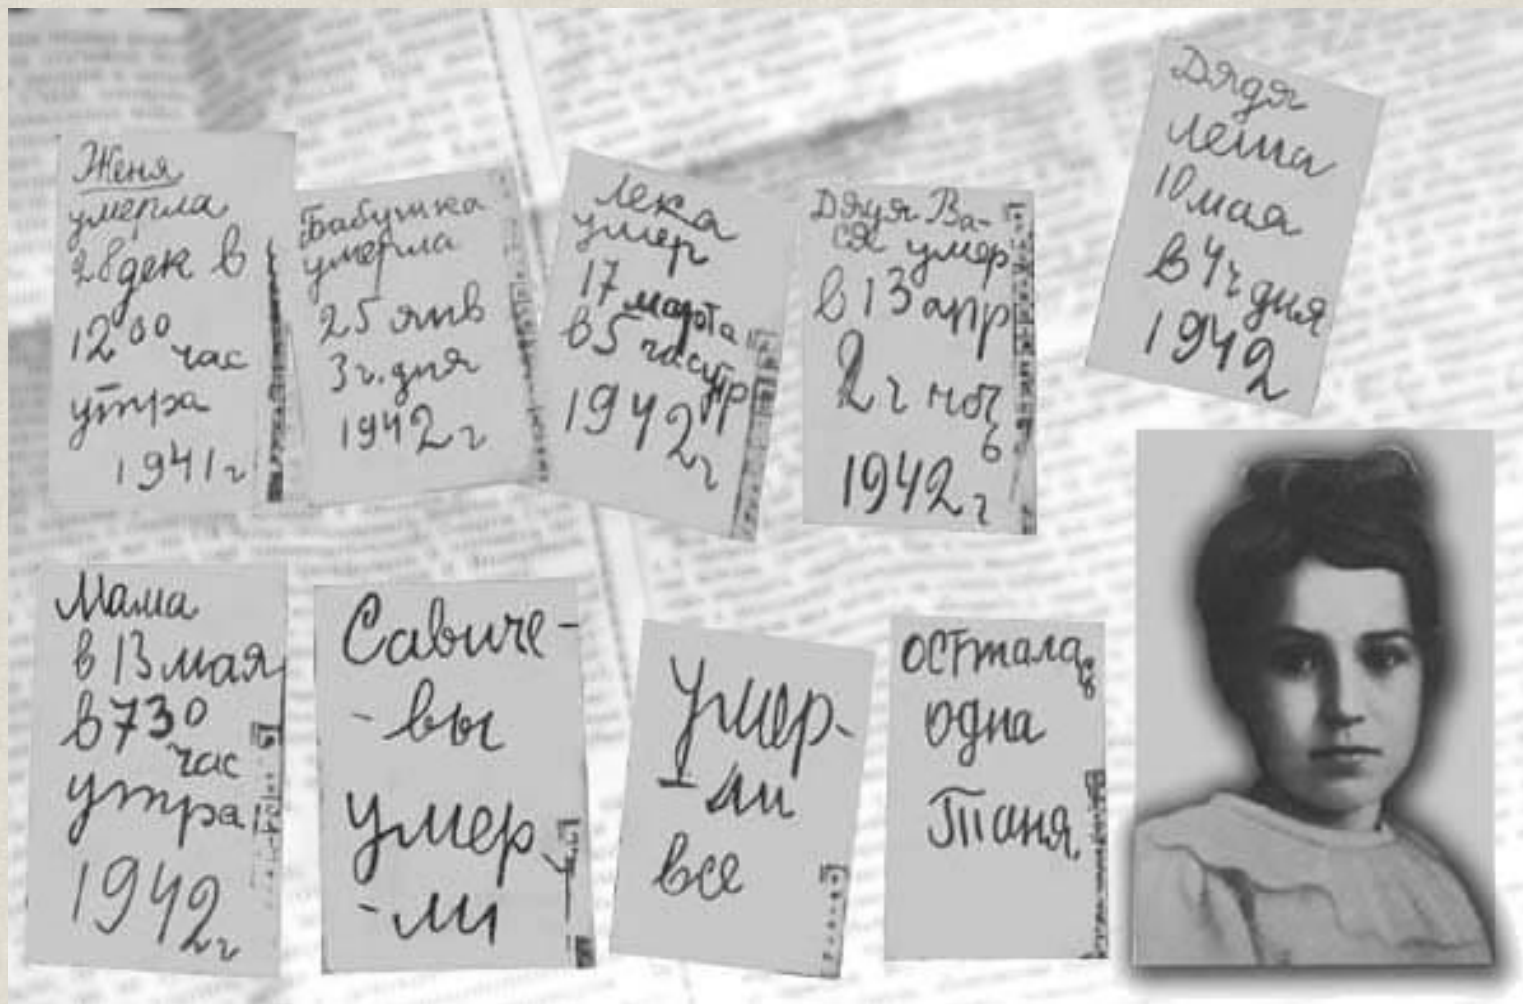 Женя
умерла
28 дек в
12 00 час
утра
1941 г
Бабушка
умерла
25 янв
3 ч. дня
1942 г
Лека
умер
17 марта
в 5 час утр
1942 г
Дядя Ва-
ся умер
в 13 апр
2 ч ноч
ь
1942 г
Дядя
Леша
10 мая
в 4 ч дня
1942
Мама
в 13 мая
в 730
час
утра
1942 г
Савиче-
-вы
умер
-ли
Умер-
-ли
все
Осталась
одна
Таня.